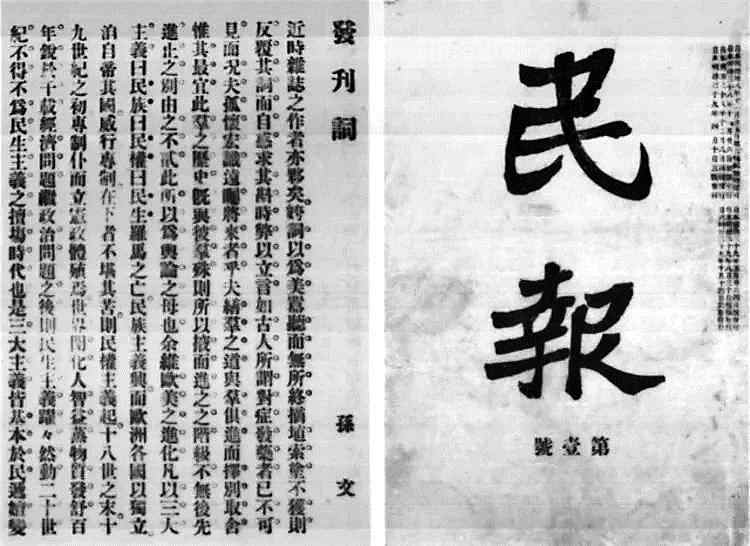 民報
第壹號
發刊詞
孫文
近時雜誌之作者亦夥矣姱詞以爲美囂聽而無所終摘埴索塗不獲則
反覆其詞而自惑求其斟時弊以立言如古人所謂對症發藥者已不可
見而況夫孤懷宏識遠矚將來者乎夫繕羣之道與羣俱進而擇別取舍
惟其最宜此羣之歷史旣與彼羣殊則所以掖而進之之階級不無後先
進止之別由之不貳此所以爲輿論之母也余維歐美之進化凡以三大
主義曰民族曰民權曰民生羅馬之亡民族主義興而歐洲各國以獨立
洎自帝其國威行專制在下者不堪其苦則民權主義起十八世之末十
九世紀之初專制仆而立憲政體殖焉世界開化人智益蒸物質發舒百
年銳於千載經濟問題繼政治問題之後則民生主義躍々然動二十世
紀不得不爲民生主義之擅場時代也是三大主義皆基本於民遞嬗變